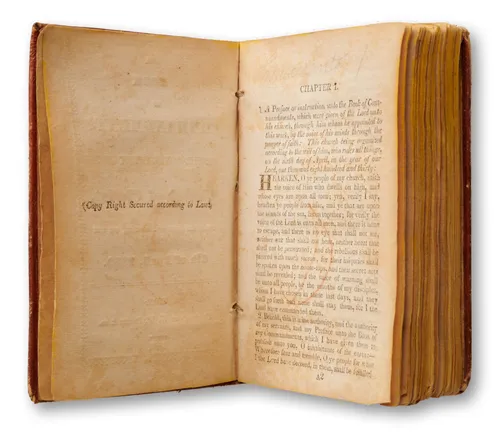 (Copy Right Secured according to Law.)
CHAPTER I.
1. A Preface or instruction, unto the Book of Com-
mandments, which were given of the Lord unto
his church, through him whom he appointed to
this work, by the voice of his saints through the
prayer of faith. This church being organized
according to the will of him, who rules all things,
on the sixth day of April, in the year of our
Lord, one thousand eight hundred and thirty:
HEARKEN, O ye people of my church, saith
the voice of him who dwells on high, and
whose eyes are upon all men; yea, verily I say,
hearken ye people from afar, and ye that are upon
the islands of the sea, listen together; for verily the
voice of the Lord is unto all men, and there is none
to escape, and there is no eye that shall not see,
neither ear that shall not hear, neither heart that
shall not be penetrated; and the rebellious shall be
pierced with much sorrow, for their iniquities shall
be spoken upon the house-tops, and their secret acts
shall be revealed; and the voice of warning shall
be unto all people, by the mouths of my disciples,
whom I have chosen in these last days, and they
shall go forth and none shall stay them, for I the
Lord have commanded them.
2 Behold, this is mine authority, and the authority
of my servants, and my Preface unto the Book of
my Commandments, which I have given them to
publish unto you, O inhabitants of the earth:—
Wherefore fear and tremble, O ye people, for what
I the Lord have decreed, in them, shall be fulfilled.
A2